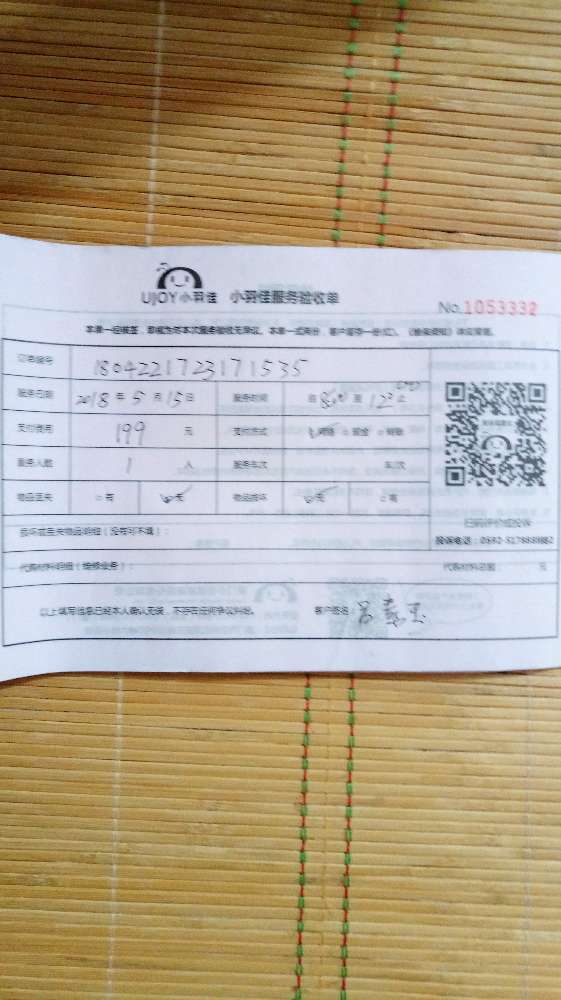 UJOY小羽佳 小羽佳服务验收单
No.1053332
本单一经核签，即视为对本次服务验收无异议。本单一式两份，客户留存一份(红)。
订单编号 1804221723171535
服务日期 2018年5月15日 服务时间 自8:00至12:00止
支付费用 199元 支付方式 网络 现金
服务人数 1人 服务车次 车/次
物品丢失 有 无 物品损坏 无 有
损坏或丢失物品明细（没有可不填）：
扫码评价或投诉
投诉电话：0592-
代购材料明细（维修业务）： 代购材料总额： 元
以上填写信息已经本人确认无误，不存在任何争议纠纷。 客户签名：